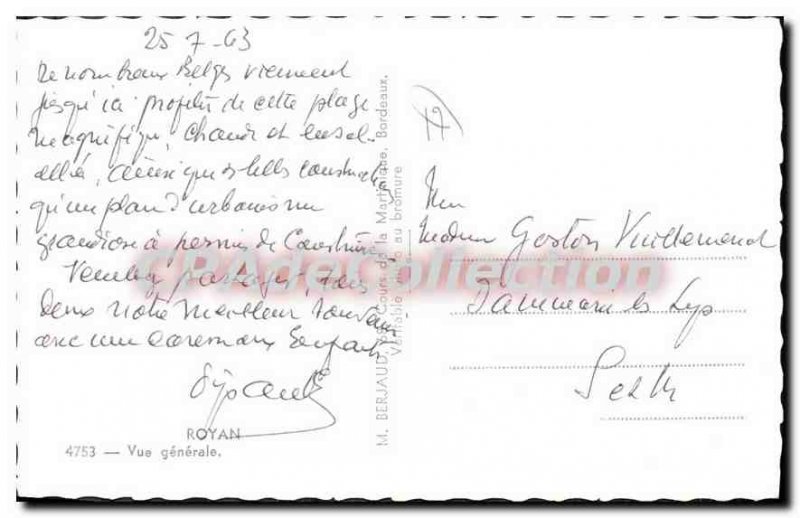 25-7-63
De nombreux Belges viennent
jusqu'ici profiter de cette plage
magnifique, chaude et ensol-
eillée, ainsi que des belles constructions
qu'un plan d'urbanisme
grandiose à permis de Construire
Veuillez partager, tous
deux notre meilleur souvenir
avec un baiser aux Enfants
ROYAN
4753 — Vue générale.
M. BERJAUD, Cours de la Martinique, Bordeaux.
Véritable au bromure
17
Mr
Madame Gaston Vuillemend
Dammarie les Lys
S et M
CPAdeCollection